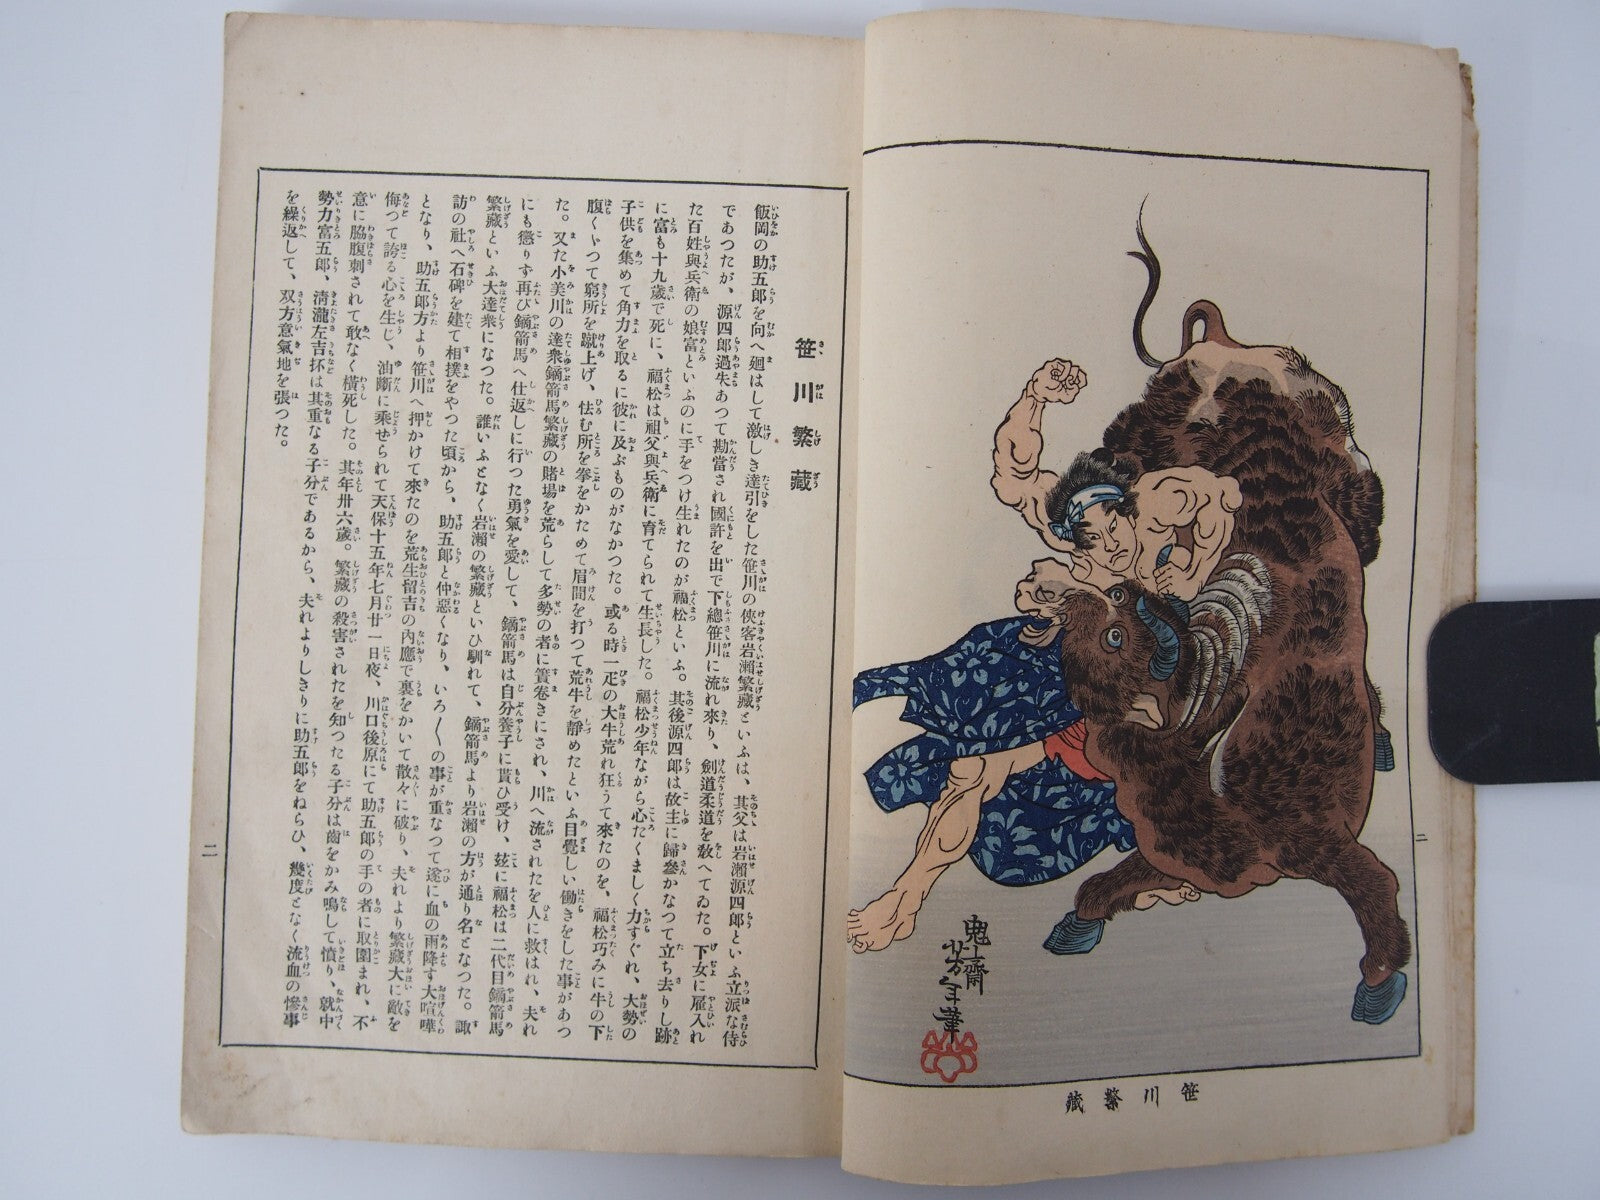 笹川繁藏
飯岡の助五郎を向へ廻はして激しき達引をした笹川の俠客岩瀨繁藏といふは、其父は岩瀨源四郎といふ立派な侍
であつたが、源四郎過失あつて勘當され國許を出で下總笹川に流れ來り、劍道柔道を敎へてゐた。下女に雇入れ
た百姓與兵衛の娘富といふのに手をつけ生れたのが福松といふ。其後源四郎は故主に歸參かなつて立ち去りし跡
に富も十九歲で死に、福松は祖父與兵衛に育てられて生長した。福松少年ながら心たくましく力すぐれ、大勢の
子供を集めて角力を取るに彼に及ぶものがなかつた。或る時一疋の大牛荒れ狂うて來たのを、福松巧みに牛の下
腹くゞつて窮所を蹴上げ、怯む所を拳をかためて眉間を打つて荒牛を靜めたといふ目覺しい働きをした事があつ
た。又た小美川の達衆鏑箭馬繁藏の賭場を荒らして多勢の者に簀卷きにされ、川へ流されたを人に救はれ、夫れ
にも懲りず再び鏑箭馬へ仕返しに行つた勇氣を愛して、鏑箭馬は自分養子に貰ひ受け、玆に福松は二代目鏑箭馬
繁藏といふ大達衆になつた。誰いふとなく岩瀨の繁藏といひ馴れて、鏑箭馬より岩瀨の方が通り名となつた。諏
訪の社へ石碑を建て相撲をやつた頃から、助五郎と仲惡くなり、いろ〱の事が重なつて遂に血の雨降す大喧嘩
となり、助五郎方より笹川へ押かけて來たのを荒生留吉の內應で裏をかいて散々に破り、夫れより繁藏大に敵を
侮つて誇る心を生じ、油斷に乘ぜられて天保十五年七月廿一日夜、川口後原にて助五郎の手の者に取圍まれ、不
意に脇腹刺されて敢なく橫死した。其年卅六歲。繁藏の殺害されたを知つたる子分は齒をかみ鳴して憤り、就中
勢力富五郎、淸瀧左吉抔は其重なる子分であるから、夫れよりしきりに助五郎をねらひ、幾度となく流血の慘事
を繰返して、双方意氣地を張つた。
二
二
魁齋芳年筆
笹川繁藏